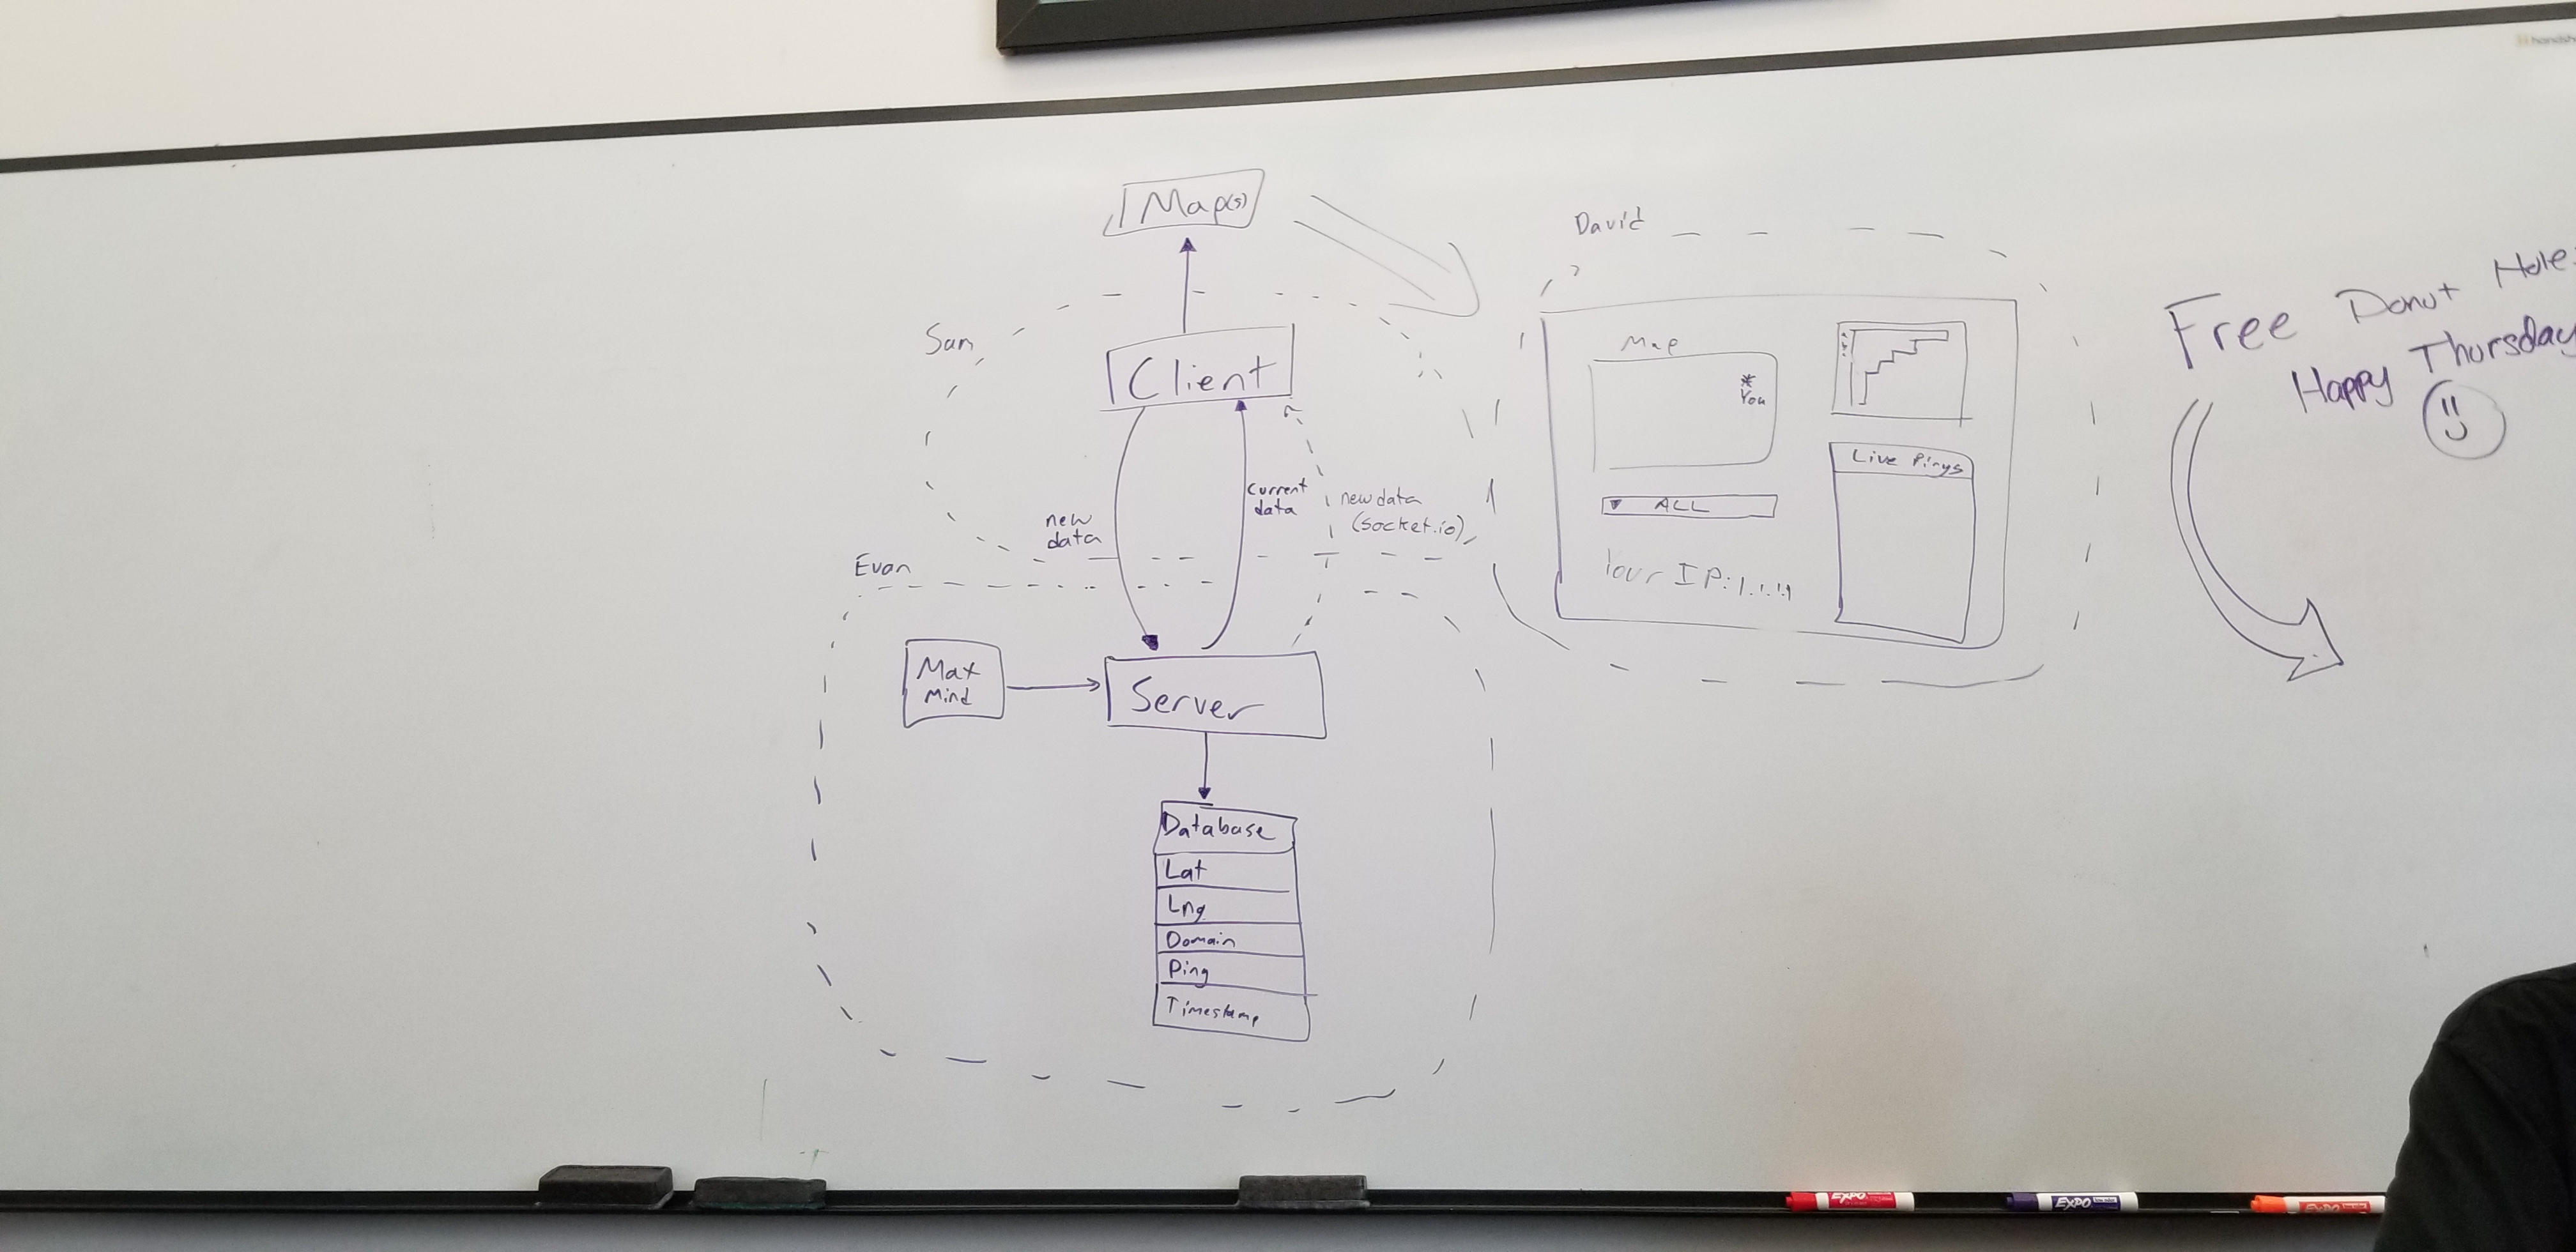 Map(s)
Sam
Client
new
data
current
data
new data
(socket.io)
Evan
Max
Mind
Server
Database
Lat
Lng
Domain
Ping
Timestamp
David
Map
*
You
ALL
Your IP: 1.1.1.1
Live Pings
Free Donut Holes
Happy Thursday
EXPO
EXPO
EXPO